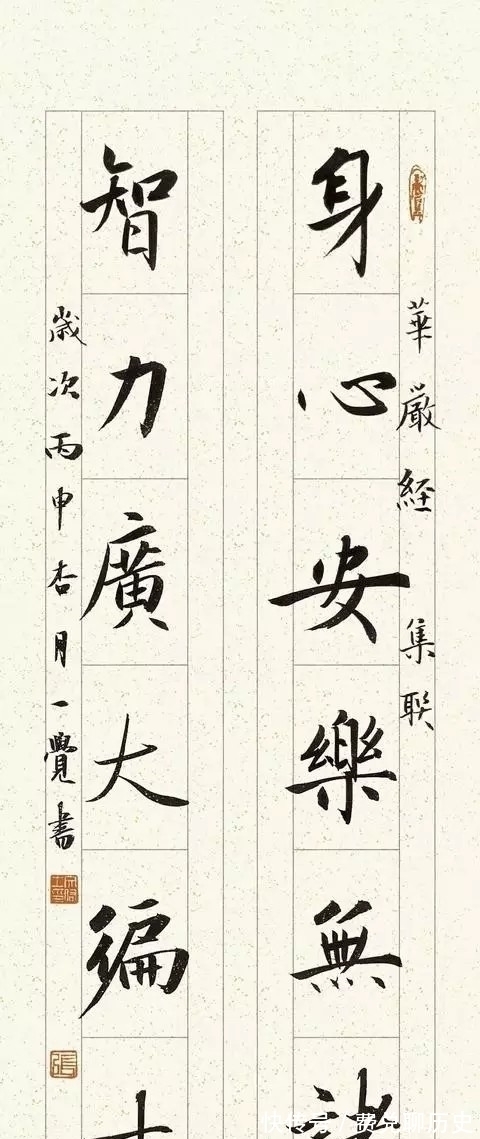 華嚴経 集联
身心安樂無
智力廣大徧
歲次丙申杏月一覺書